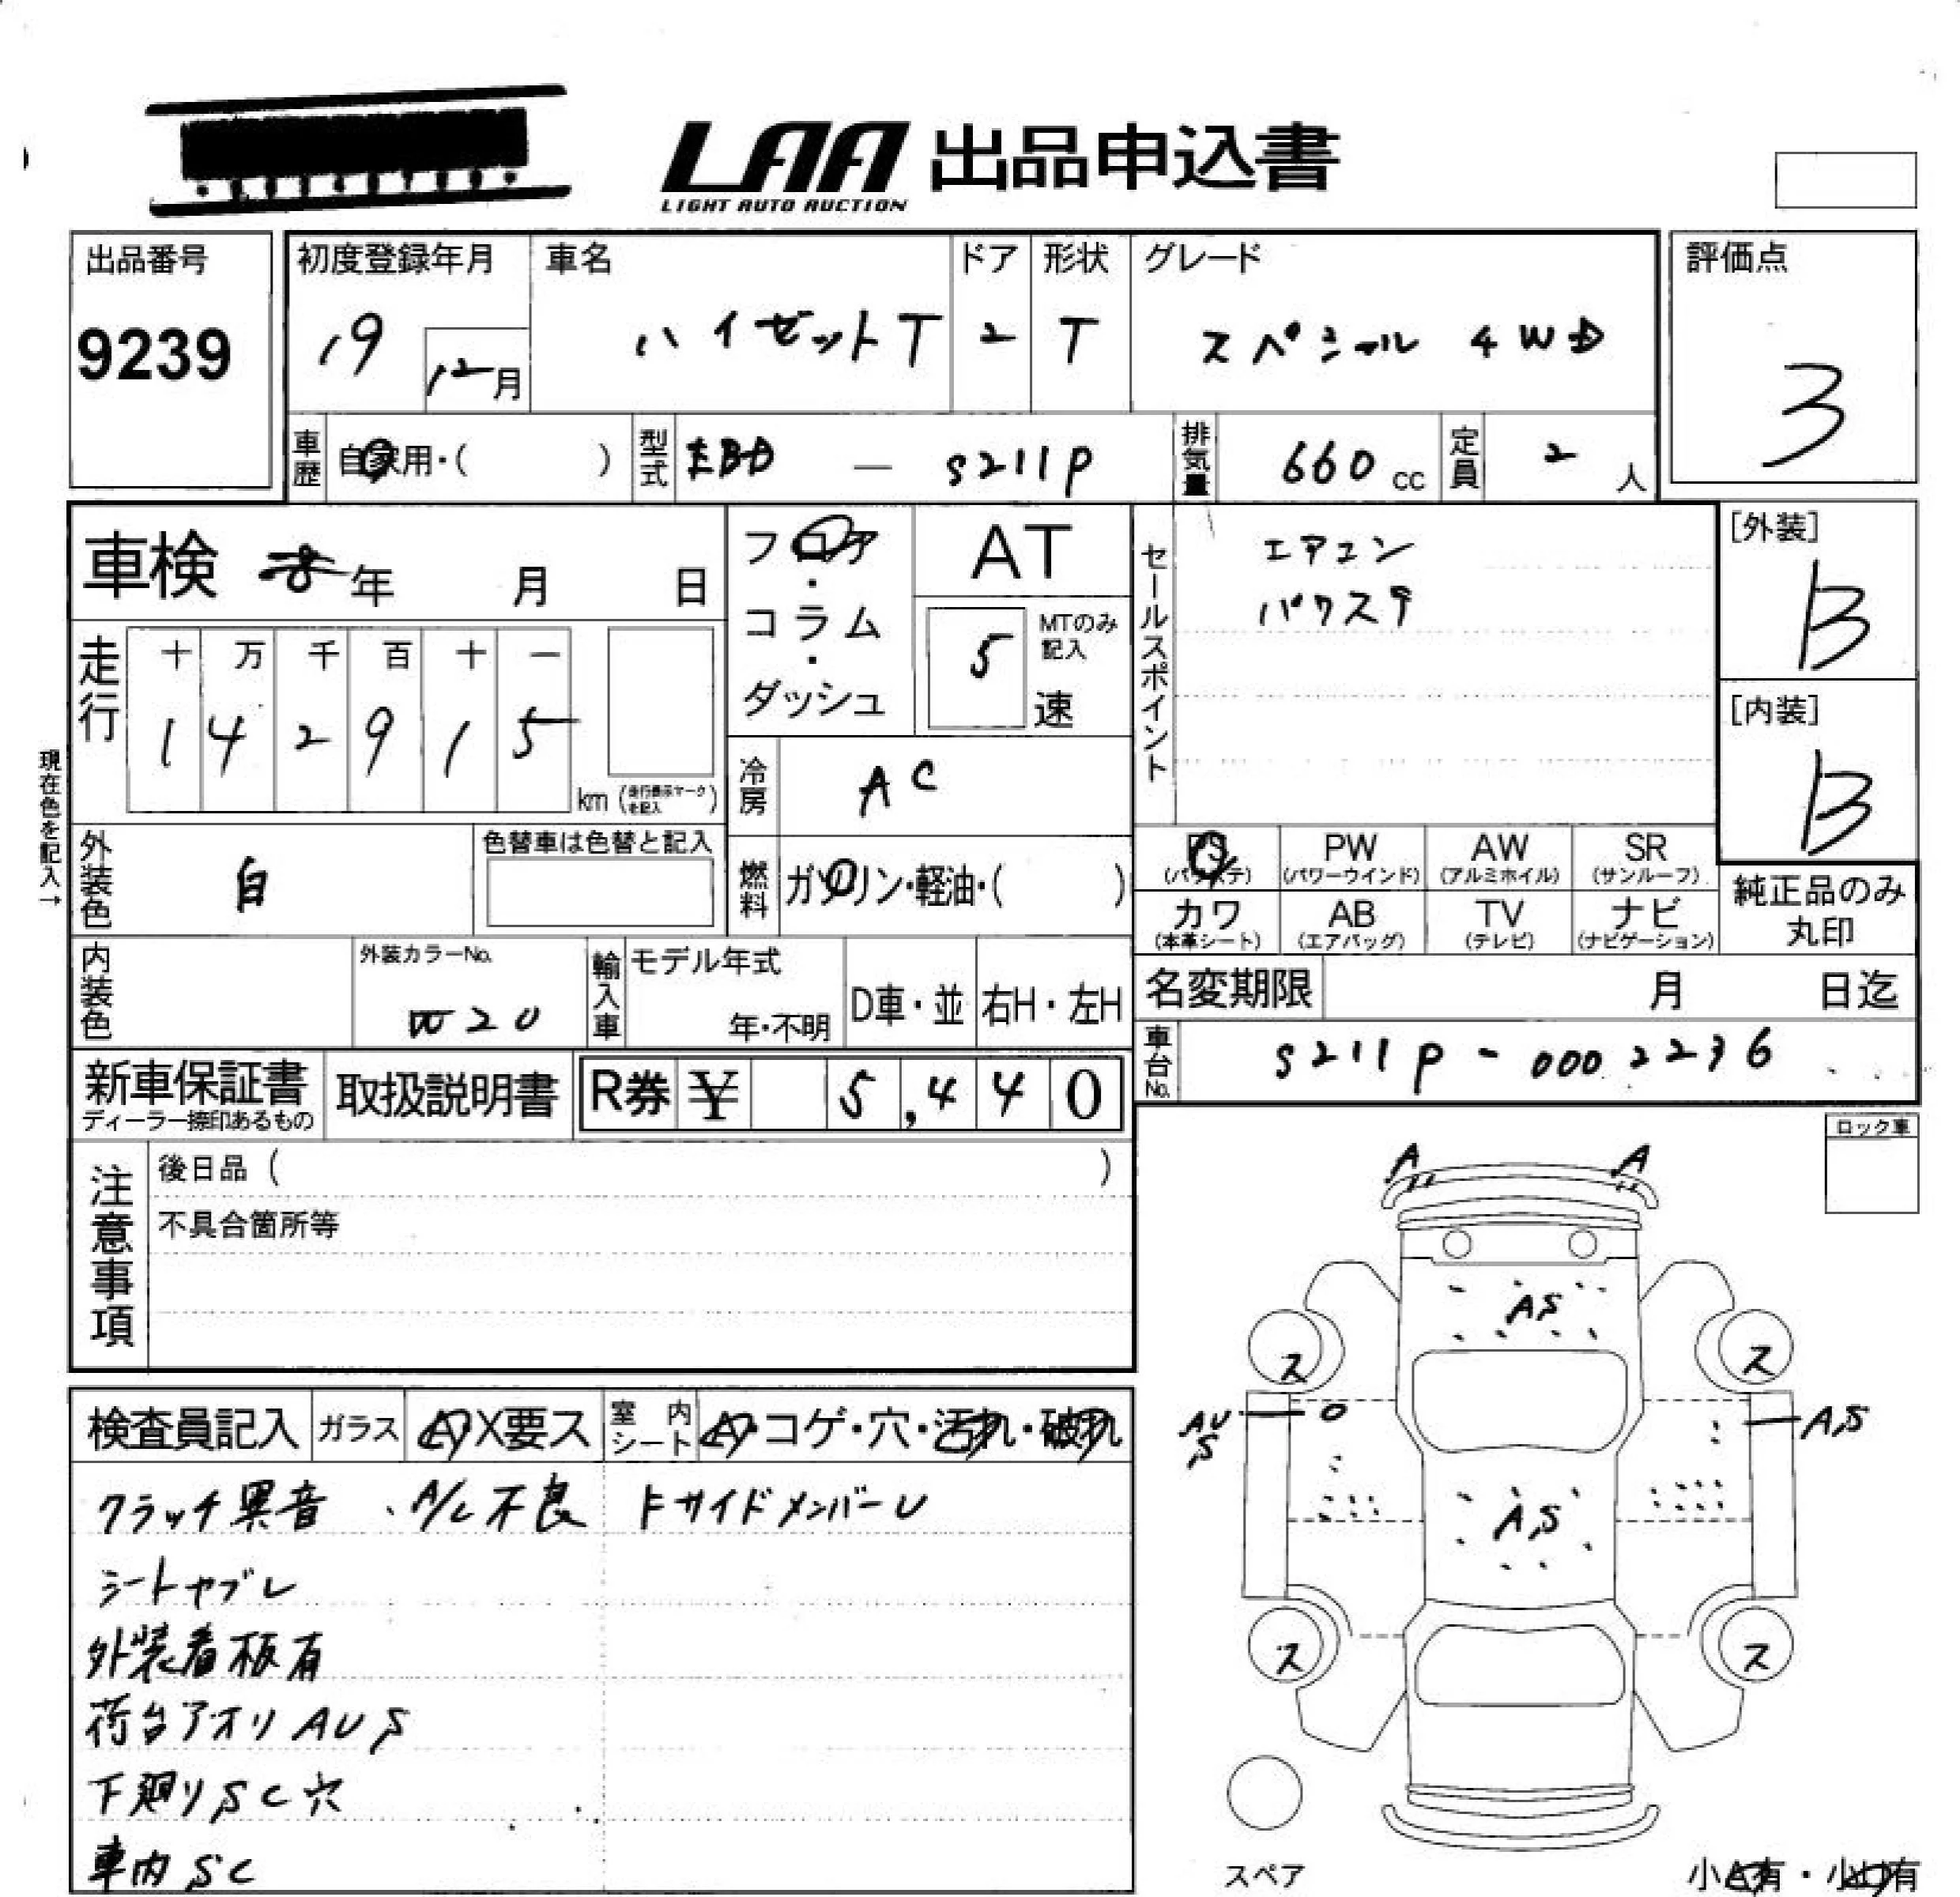 LAA 出品申込書
LIGHT AUTO AUCTION
出品番号
9239
初度登録年月
19
12月
車名
ハイゼットT
ドア
2
形状
T
グレード
スペシャル 4WD
評価点
3
車歴
自家用・( )
型式
EBD — S211P
排気量
660 cc
定員
2 人
車検 年 月 日
フロア
・
コラム
・
ダッシュ
AT
5
MTのみ
記入
速
セールスポイント
エアコン
パワステ
[外装]
B
[内装]
B
走行
十 万 千 百 十 一
1 4 2 9 1 5
km (走行表示マークを記入)
現在色を記入→
冷房
AC
外装色
白
色替車は色替と記入
燃料
ガソリン・軽油・( )
PS
(パワステ)
PW
(パワーウインド)
AW
(アルミホイル)
SR
(サンルーフ)
カワ
(本革シート)
AB
(エアバッグ)
TV
(テレビ)
ナビ
(ナビゲーション)
純正品のみ
丸印
内装色
外装カラーNo.
W20
輸入車
モデル年式
年・不明
D車・並
右H・左H
名変期限 月 日迄
車台No.
S211P - 0002236
新車保証書
ディーラー捺印あるもの
取扱説明書
R券 ¥ 5,440
ロック車
注意事項
後日品 ( )
不具合箇所等
A A
A,S
ス ス
AU
S
A,S
A,S
ス ス
スペア
検査員記入
ガラス
X要ス
室内
シート
コゲ・穴・汚れ・破れ
クラッチ異音 、A/C不良 FサイドメンバーU
シートヤブレ
外装看板有
荷台アオリ AUS
下廻りSC穴
車内SC